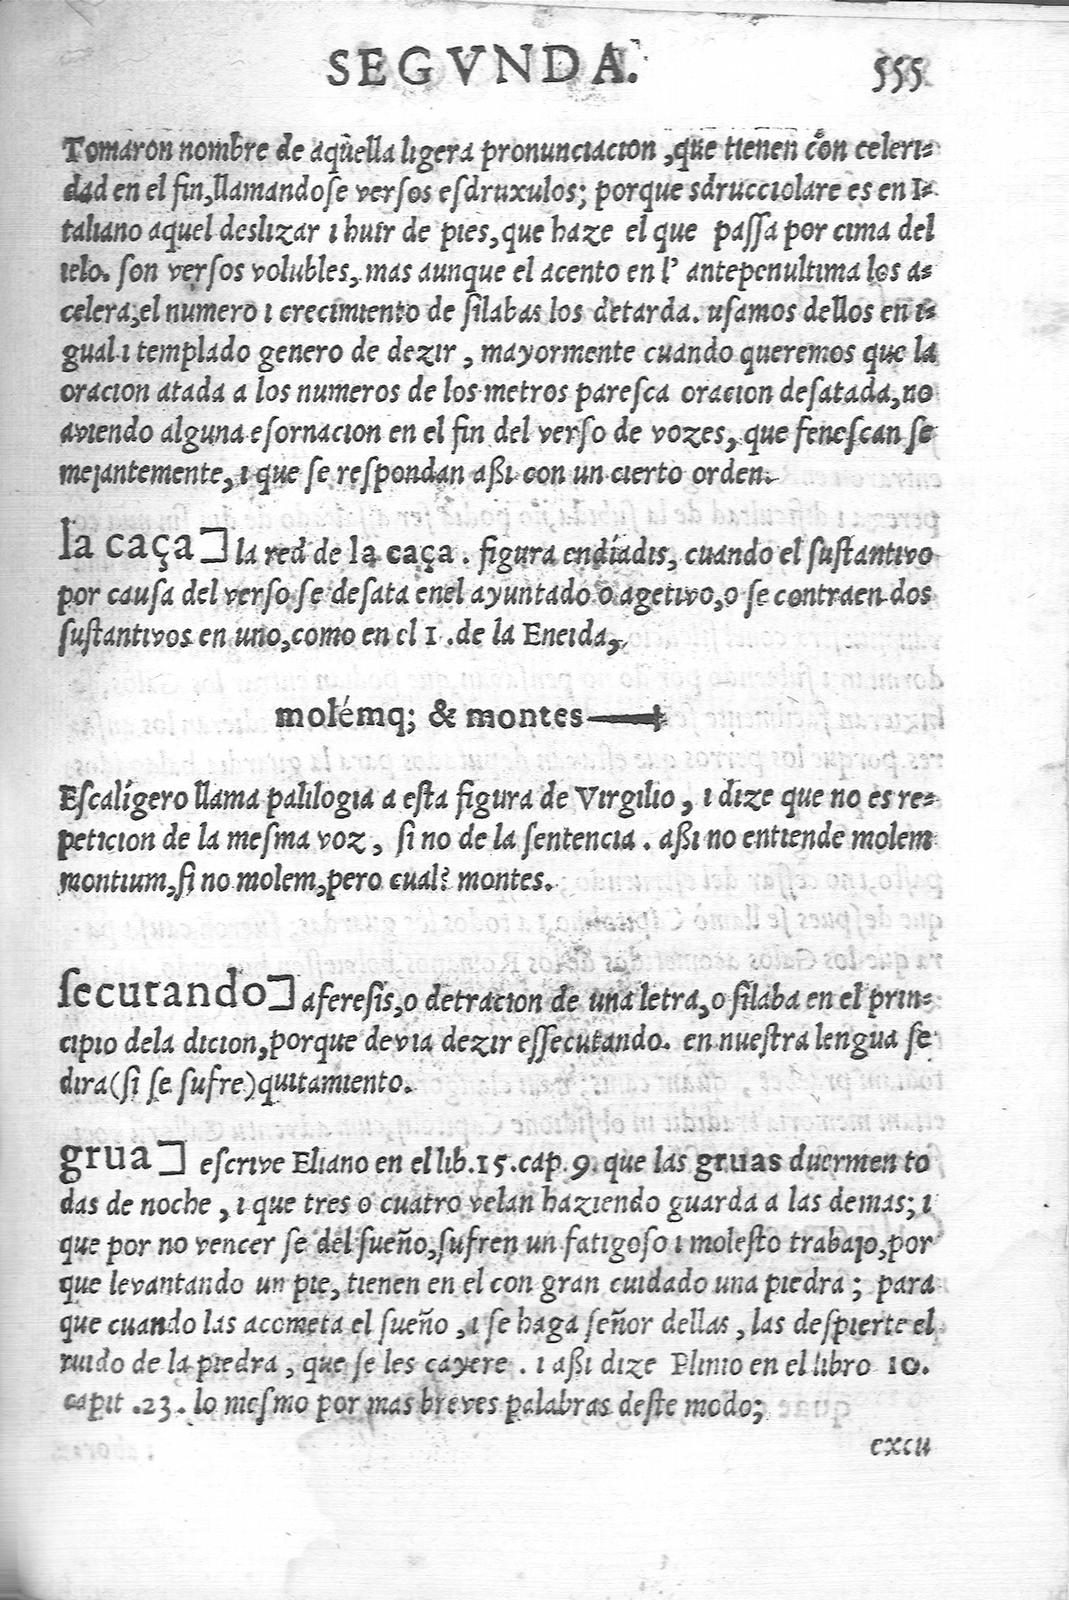 SEGVNDA. 555
Tomaron nombre de aq̃lla ligera pronunciacion, que tienen con celeri=
dad en el fin, llamandose versos esdruxulos; porque sdrucciolare es en I=
taliano aquel deslizar i huir de pies, que haze el que passa por cima del
ielo. son versos volubles, mas aunque el acento en l' antepenultima los a=
celera, el numero i crecimiento de silabas los detarda. usamos dellos en i=
gual i templado genero de dezir, mayormente cuando queremos que la
oracion atada a los numeros de los metros paresca oracion desatada, no
aviendo alguna esornacion en el fin del verso de vozes, que fenescan se
mejantemente, i que se respondan aßi con un cierto orden.
la caça] la red de la caça. figura endíadis, cuando el sustantivo
por causa del verso se desata enel ayuntado o agetivo, o se contraen dos
sustantivos en uno, como en el 1. de la Eneida,
molémq; & montes
Escalígero llama palilogia a esta figura de Virgilio, i dize que no es re=
peticion de la mesma voz, si no de la sentencia. aßi no entiende molem
montium, si no molem, pero cual? montes.
secutando] aferesis, o detracion de una letra, o silaba en el prin=
cipio dela dicion, porque devia dezir essecutando. en nuestra lengua se
dira (si se sufre) quitamiento.
grua] escrive Eliano en el lib. 15. cap. 9. que las gruas duermen to
das de noche, i que tres o cuatro velan haziendo guarda a las demas; i
que por no vencer se del sueño, sufren un fatigoso i molesto trabajo, por
que levantando un pie, tienen en el con gran cuidado una piedra; para
que cuando las acometa el sueño, i se haga señor dellas, las despierte el
ruido de la piedra, que se les cayere. i aßi dize Plinio en el libro 10.
capit. 23. lo mesmo por mas breves palabras deste modo;
excu